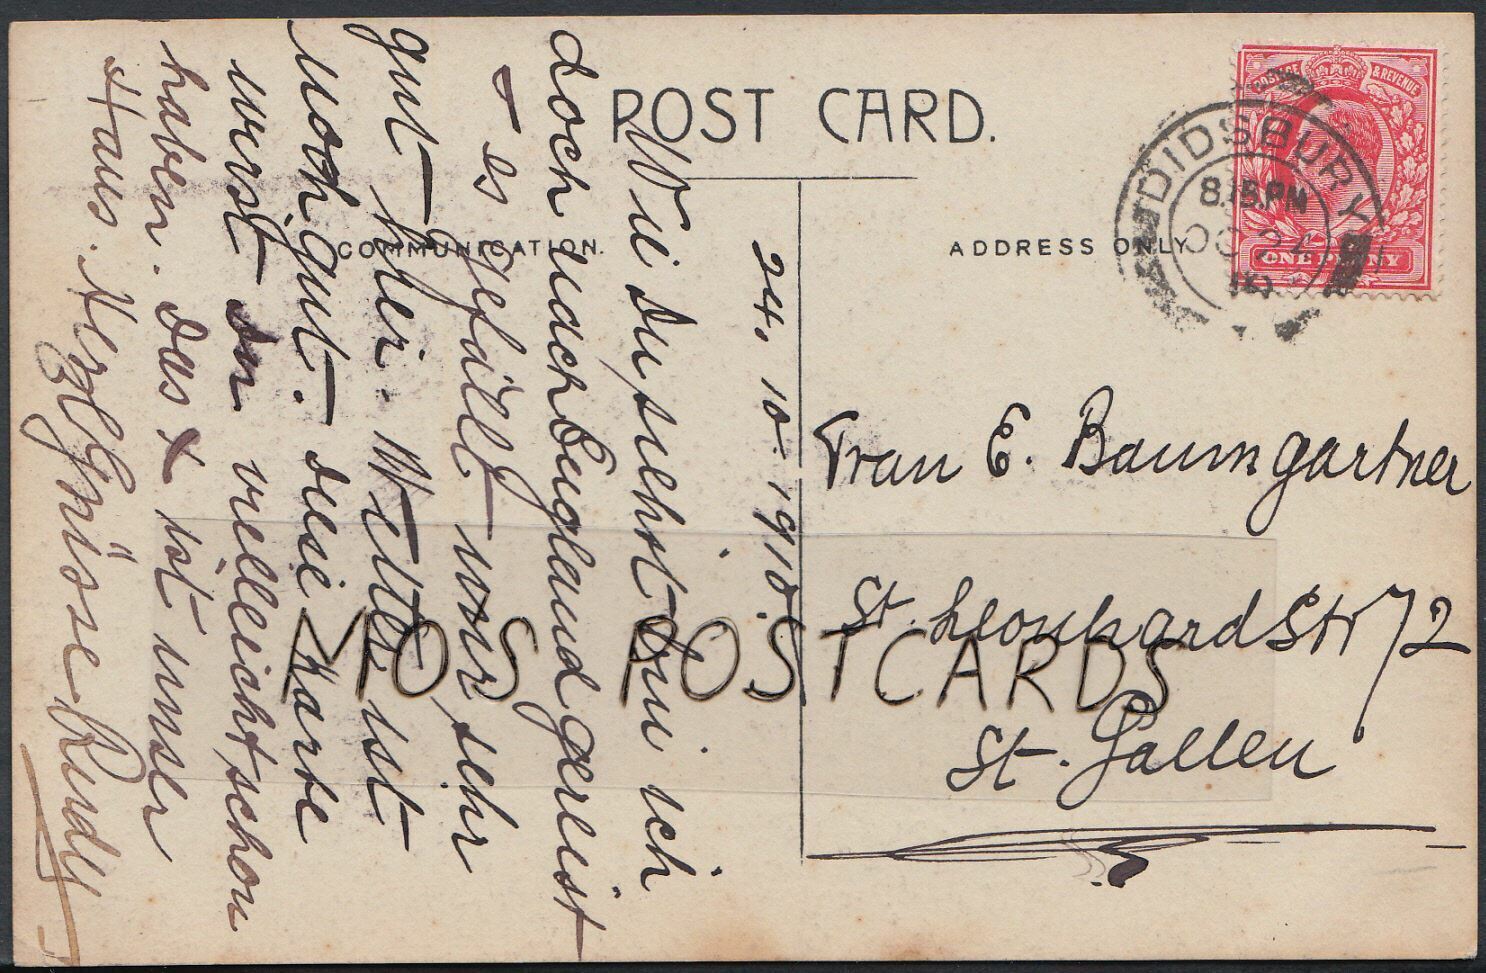 POST CARD.
COMMUNICATION.
ADDRESS ONLY
POSTAGE & REVENUE
ONE PENNY
DIDSBURY
8.15.PM
OC 24
10
24. 10. 1910.
Wie Du siehst bin ich
doch nach England gereist
– es gefällt mir sehr
gut hier. Wetter ist
noch gut. – diese Karte
wirst Du vielleicht schon
haben. Das x ist unser
Haus. Herzl Grüsse Ruedy
Frau E. Baumgartner
St. Leonhard Str 72
St. Gallen
MOS POSTCARDS